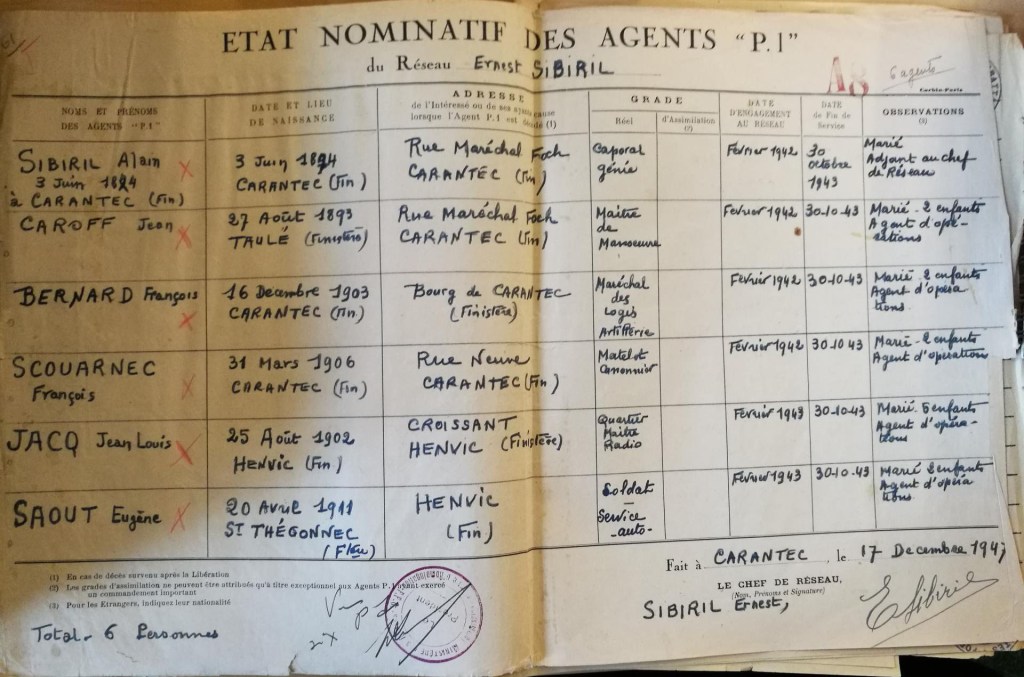 ETAT NOMINATIF DES AGENTS "P.1"
du Réseau Ernest SIBIRIL
A8
6 agents
Corbin-Paris
NOMS ET PRÉNOMS
DES AGENTS "P.1"
DATE ET LIEU
DE NAISSANCE
ADRESSE
de l'Intéressé ou de ses ayants cause
lorsque l'Agent P.1 est décédé (1)
GRADE
Réel
d'Assimilation
(2)
DATE
D'ENGAGEMENT
AU RÉSEAU
DATE
de Fin de
Service
OBSERVATIONS
(3)
SIBIRIL Alain
3 Juin 1894
à CARANTEC (Fin)
3 Juin 1894
CARANTEC (Fin)
Rue Maréchal Foch
CARANTEC (Fin)
Caporal
génie
Février 1942
30
octobre
1943
Marié
Adjant au chef
de Réseau
CAROFF Jean
27 Août 1893
TAULÉ (Finistère)
Rue Maréchal Foch
CARANTEC (Fin)
Maitre
de
Manoeuvre
Fevrier 1942
30-10-43
Marié - 2 enfants
Agent d'opé-
rations
BERNARD François
16 Decembre 1903
CARANTEC (Fin.)
Bourg de CARANTEC
(Finistère)
Maréchal
des
Logis
Artillerie
Février 1942
30-10-43
Marié - 2 enfants
Agent d'opéra
tions.
SCOUARNEC
François
31 Mars 1906
CARANTEC (Fin)
Rue Neuve
CARANTEC (Fin)
Matelot
Canonnier
Février 1942
30-10-43
Marié - 2 enfants
Agent d'operations
JACQ Jean Louis
25 Août 1902
HENVIC (Fin)
CROISSANT
HENVIC (Finistère)
Quartier
Maitre
Radio
Février 1943
30-10-43
Marié. 5 enfants
Agent d'opéra-
tions
SAOUT Eugène
20 Avril 1911
ST THÉGONNEC
HENVIC
(Fin)
Soldat
-
Service
-auto-
Février 1943
30-10-43
Marié 2 enfants
Agent d'opéra
tions
(1) En cas de décès survenu après la Libération
(2) Les grades d'assimilation ne peuvent être attribués qu'à titre exceptionnel aux Agents P.1 ayant exercé
un commandement important
(3) Pour les Etrangers, indiquer leur nationalité
Total - 6 Personnes
Fait à CARANTEC, le 17 Decembre 1947
LE CHEF DE RÉSEAU,
(Nom, Prénoms et Signature)
SIBIRIL Ernest,
E Sibiril